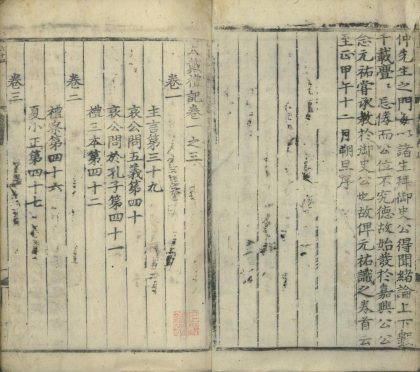 仲先生之門每以諸生拜御史公得聞緒論上下數
千載亹亹忘倦而公位不究德故始發於嘉興公公
念元祐嘗承教於御史公也故俾元祐識之卷首云
至正甲午十二月朔旦序
大戴禮記卷一之三
卷一
主言第三十九
哀公問五義第四十
哀公問於孔子第四十一
禮三本第四十二
卷二
禮察第四十六
夏小正第四十七
卷三